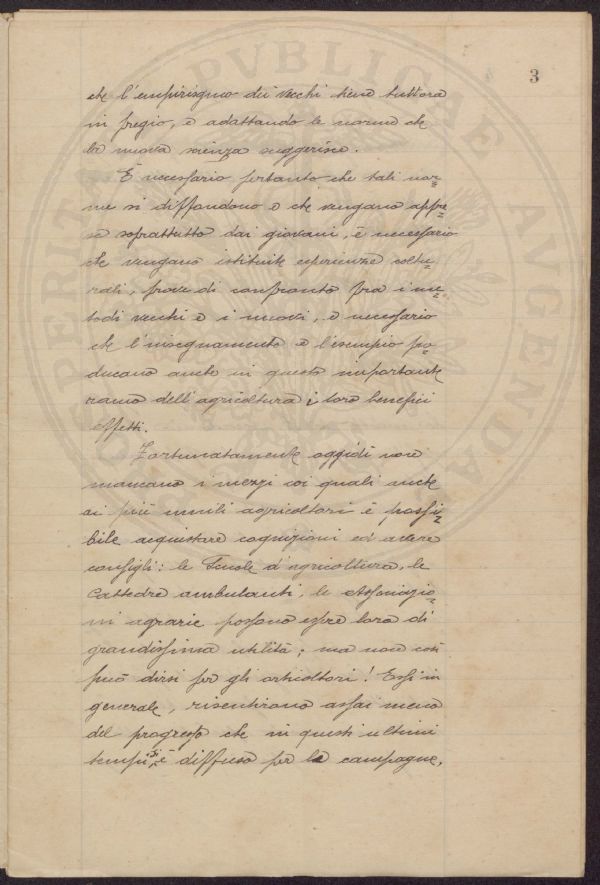 3
che l'empirismo dei vecchi tiene tuttora
in pregio, e adattando le norme che
la nuova scienza suggerisce.
È necessario pertanto che tali nor=
me si diffondono e che vengano appre=
se soprattutto dai giovani, è necessario
che vengano istituite esperienze coltu=
rali, prove di confronto fra i me=
todi vecchi e i nuovi, è necessario
che l'insegnamento e l'esempio pro=
ducano anche in questo importante
ramo dell'agricoltura i loro benefici
effetti.
Fortunatamente oggidì non
mancano i mezzi coi quali anche
ai più umili agricoltori è possi=
bile acquistare cognizioni ed avere
consigli: le Scuole d'agricoltura, le
Cattedre ambulanti, le Associazio=
ni agrarie possono essere loro di
grandissima utilità; ma non così
può dirsi per gli orticoltori! Essi in
generale, risentirono assai meno
del progresso che in questi ultimi
tempi si è diffuso per le campagne,
PROSPERITATI PVBLICAE AVGENDAE